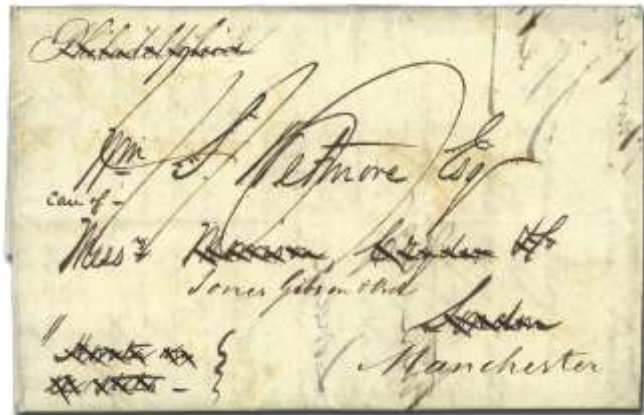 Philadelphia
Wm S. Wetmore Esq
Care of -
Messrs & Co
Jones Gibson & Ord
London
Manchester